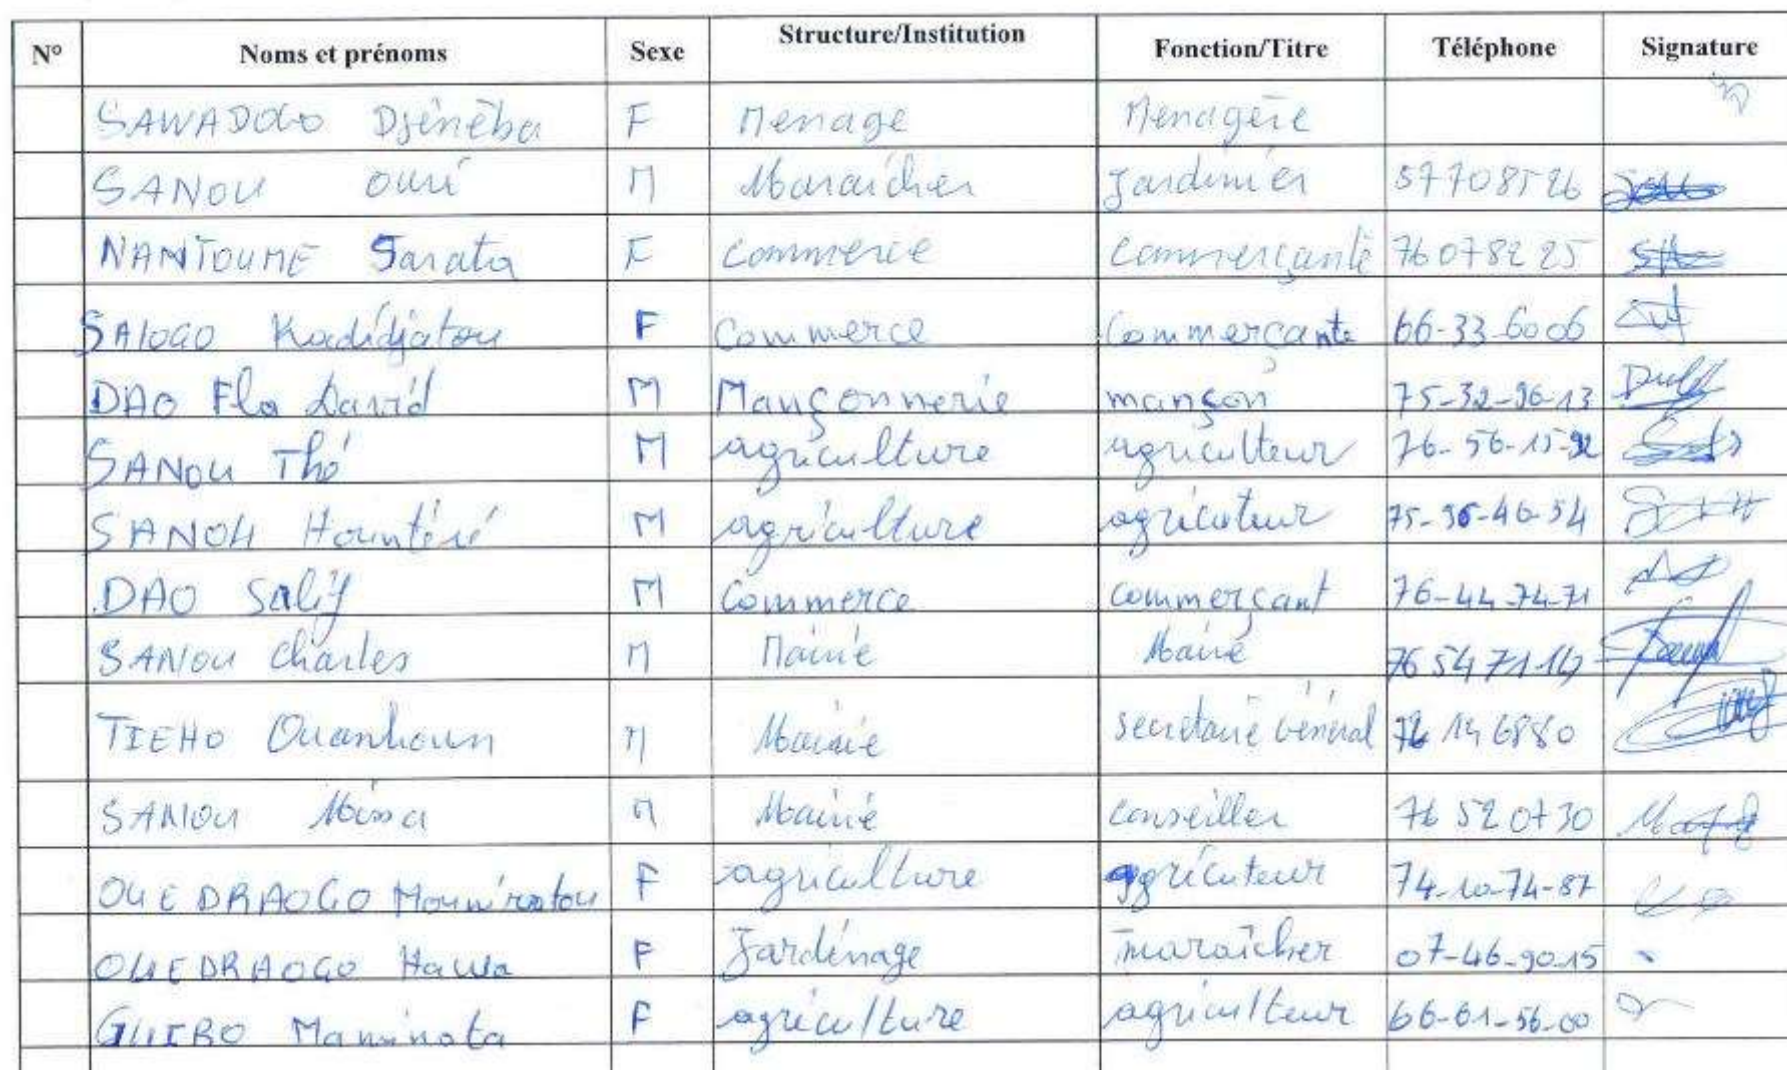 N° Noms et prénoms Sexe Structure/Institution Fonction/Titre Téléphone Signature
SAWADOGO Djénèba F Menage Menagère
SANOU Ouri M Maraicher Jardinier 57708526
NAMTOUME Sarata F Commerce Commerçante 76078225
SALOGO Kadidjatou F Commerce Commerçante 66-33-6006
DAO Flo David M Mançonnerie mançon 75-32-96-13
SANOU Tho M agriculture agriculteur 76-56-15-92
SANOU Hountéré M agriculture agricuteur 75-36-46-54
DAO Salif M Commerce commerçant 76-44-74-71
SANOU Charles M Mairie Maire 76 54 71 14
TIEHO Ouanhoun M Mairie Secretaire Général 76 14 6880
SANOU Moussa M Mairie conseiller 76 52 07 30
OUEDRAOGO Mouniratou F agriculture agricuteur 74-10-74-87
OUEDRAOGO Hawa F Jardinage maraîcher 07-46-90-15
GUIRO Maminata F agriculture agriculteur 66-61-56-00